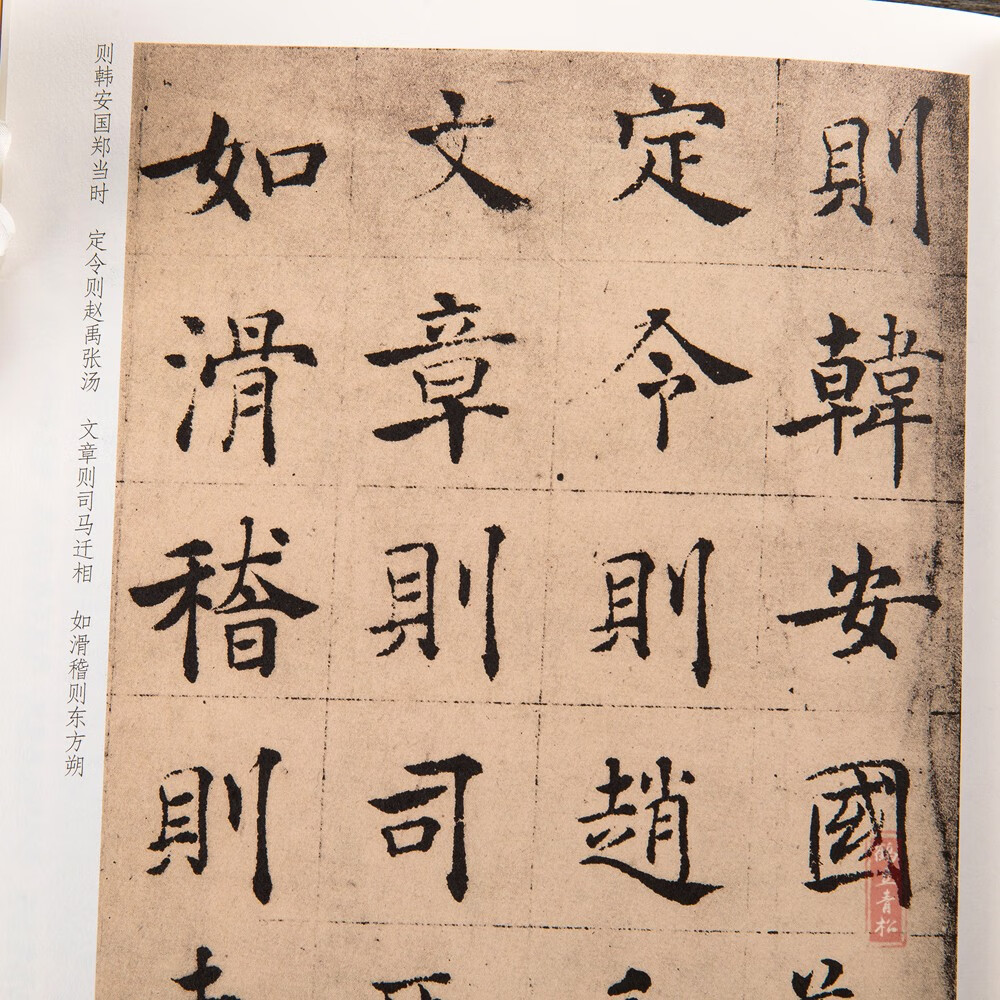 則韓安國
定令則趙
文章則司
如滑稽則
则韩安国郑当时 定令则赵禹张汤 文章则司马迁相 如滑稽则东方朔
鶴立青松